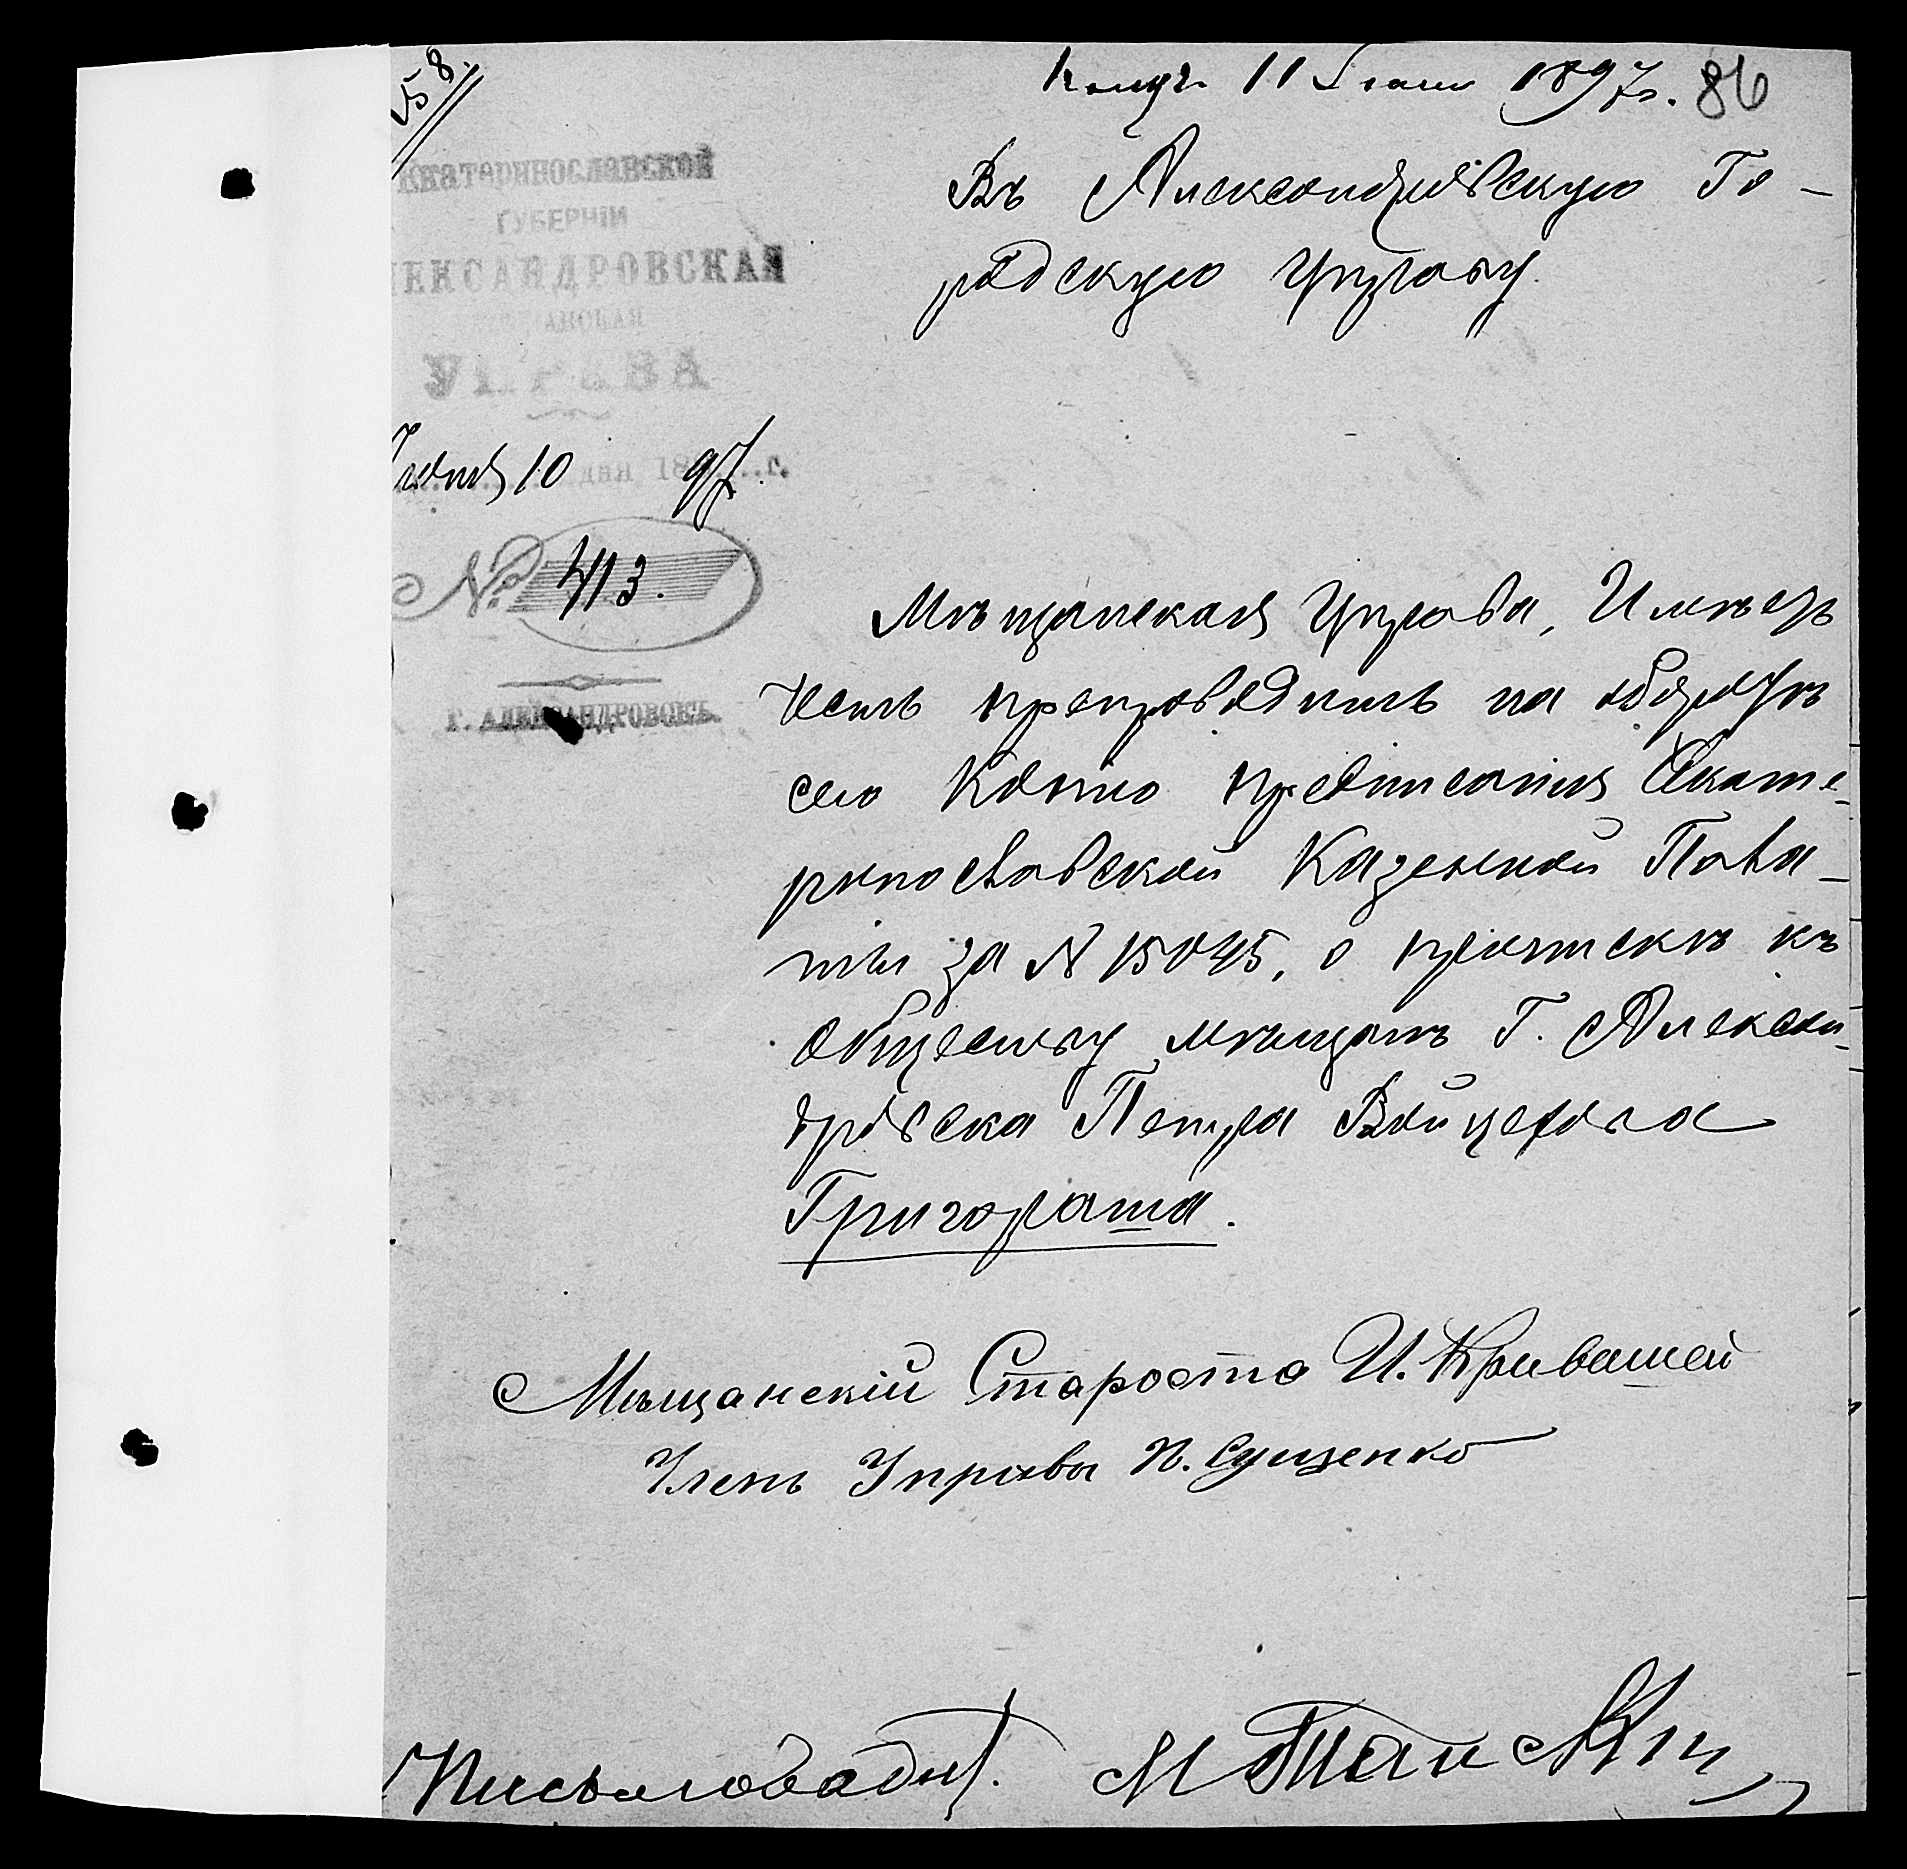 58.
11 1897г. 86
Екатеринославской
ГУБЕРНІИ
ЛЕКСАНДРОВСКАЯ
УПРАВА
Іюня 10 дня 1897 г.
№ 413.
г. АЛЕКСАНДРОВСКЪ.
Въ Александровскую Го-
родскую Управу.
Мѣщанская Управа, Имѣетъ
честь препроводить на обороте
сего Копію предписанія Екате-
ринославской Казенной Пала-
ты за N 15045, о припискѣ къ
обществу мѣщанъ Г. Алексан-
дровска Петра Войцехова
Григораша.
Мѣщанскій Староста И. Кривашей
Членъ Управы П. Сущенко
Письмовод.